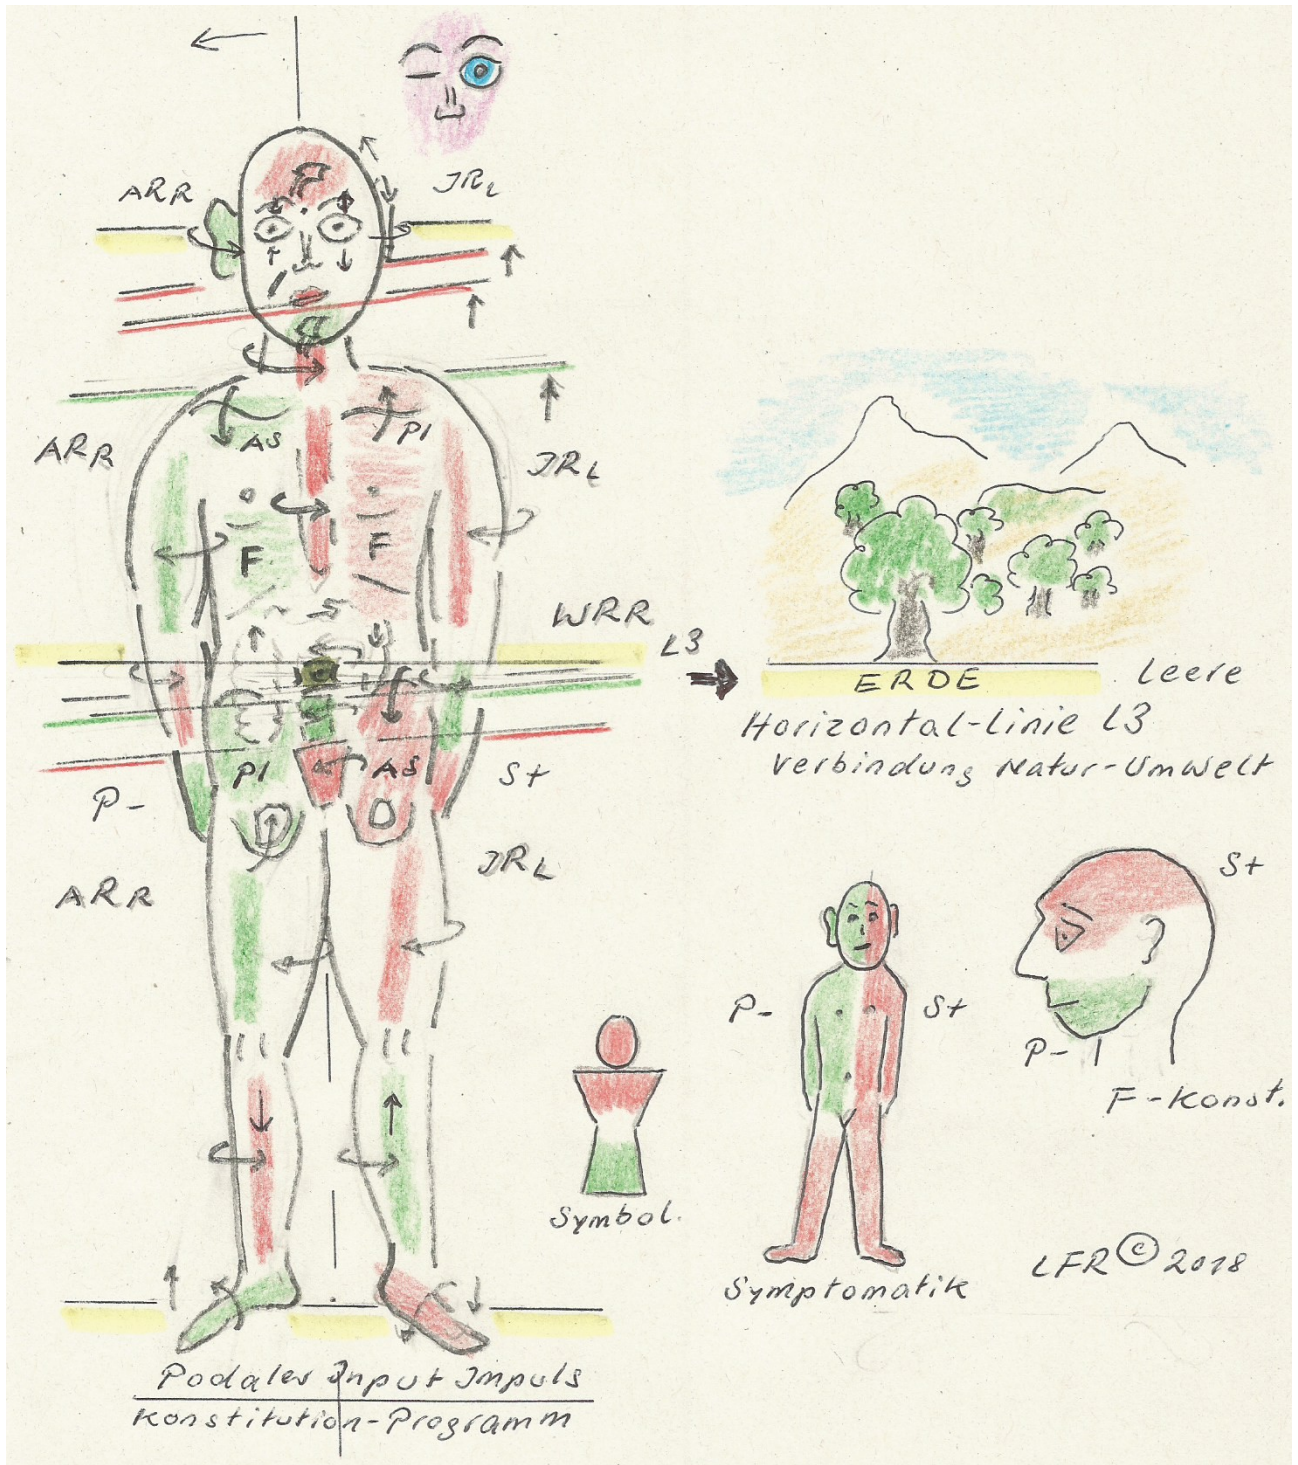 ARR
JRL
AS
PI
ARR
JRL
F
F
WRR
L3
ERDE
Leere
Horizontal-Linie L3
Verbindung Natur-Umwelt
PI
AS
P-
S+
ARR
JRL
S+
P-
S+
P-
F-Konst.
Symbol.
Symptomatik
LFR © 2018
Podaler Input Impuls
Konstitution-Programm